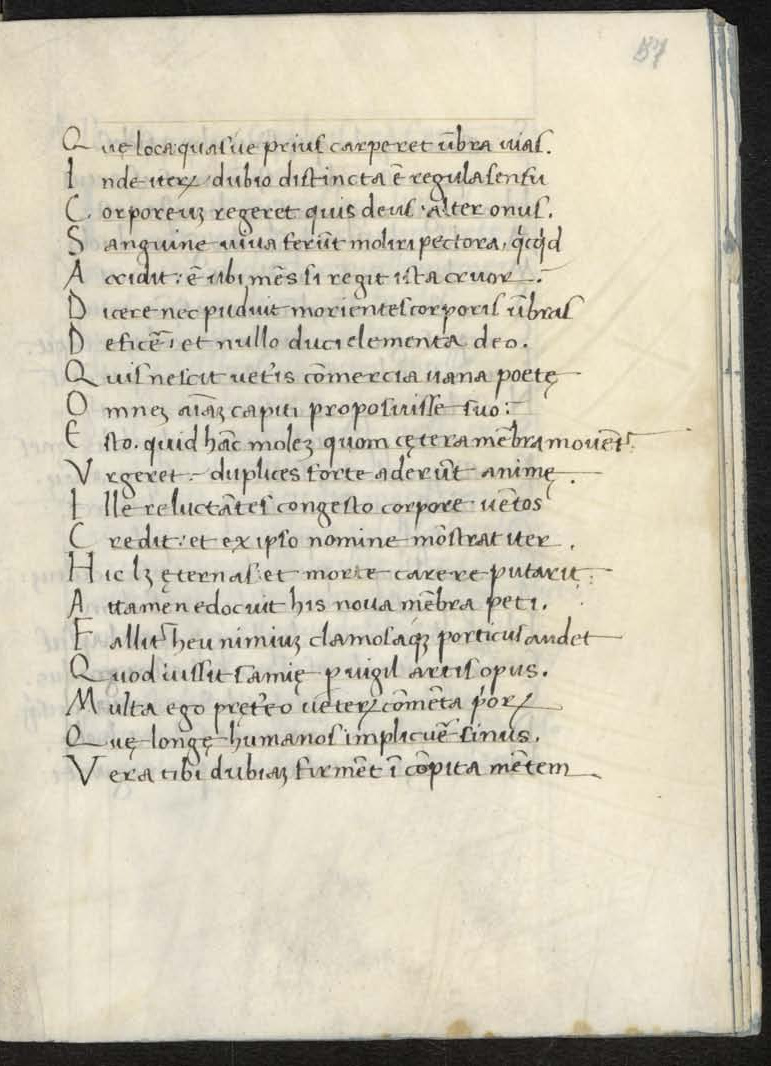 57
Quę loca quasue prius carperet ūbra uias.
Inde iterꝝ dubio distincta ē regula sensu
Corporeuꝫ regeret quis deus alter onus.
Sanguine uiua ferūt moliri pectora, qͥcqͥd
Accidit: ē ubi mēs si regit ista cruor.
Dicere nec puduit morientes corporis ūbras
Deficē: et nullo duci elementa deo.
Quis nescit uetᵉis cōmercia uana poetę
Omneꝫ aīaꝫ capiti proposuisse suo:
Esto. quid hāc moleꝫ quom cętera mēbra mouēt
Vrgeret: duplices forte aderūt animę.
Ille reluctātes congesto corpore uētos
Credit: et ex ipso nomine mōstrat iter.
Hic lꝫ ęternas: et morte carere putarit:
Attamen edocuit his noua mēbra peti.
Fallit heu nimiuꝫ clamosaqꝫ porticus audet
Quod iussit samię ꝑuigil artis opus.
Multa ego pretᵉeo ueterꝝ cōmēta pͥorꝝ
Quę longę humanos implicuē sinus.
Vera tibi dubiaꝫ firmēt ī cōpita mētem